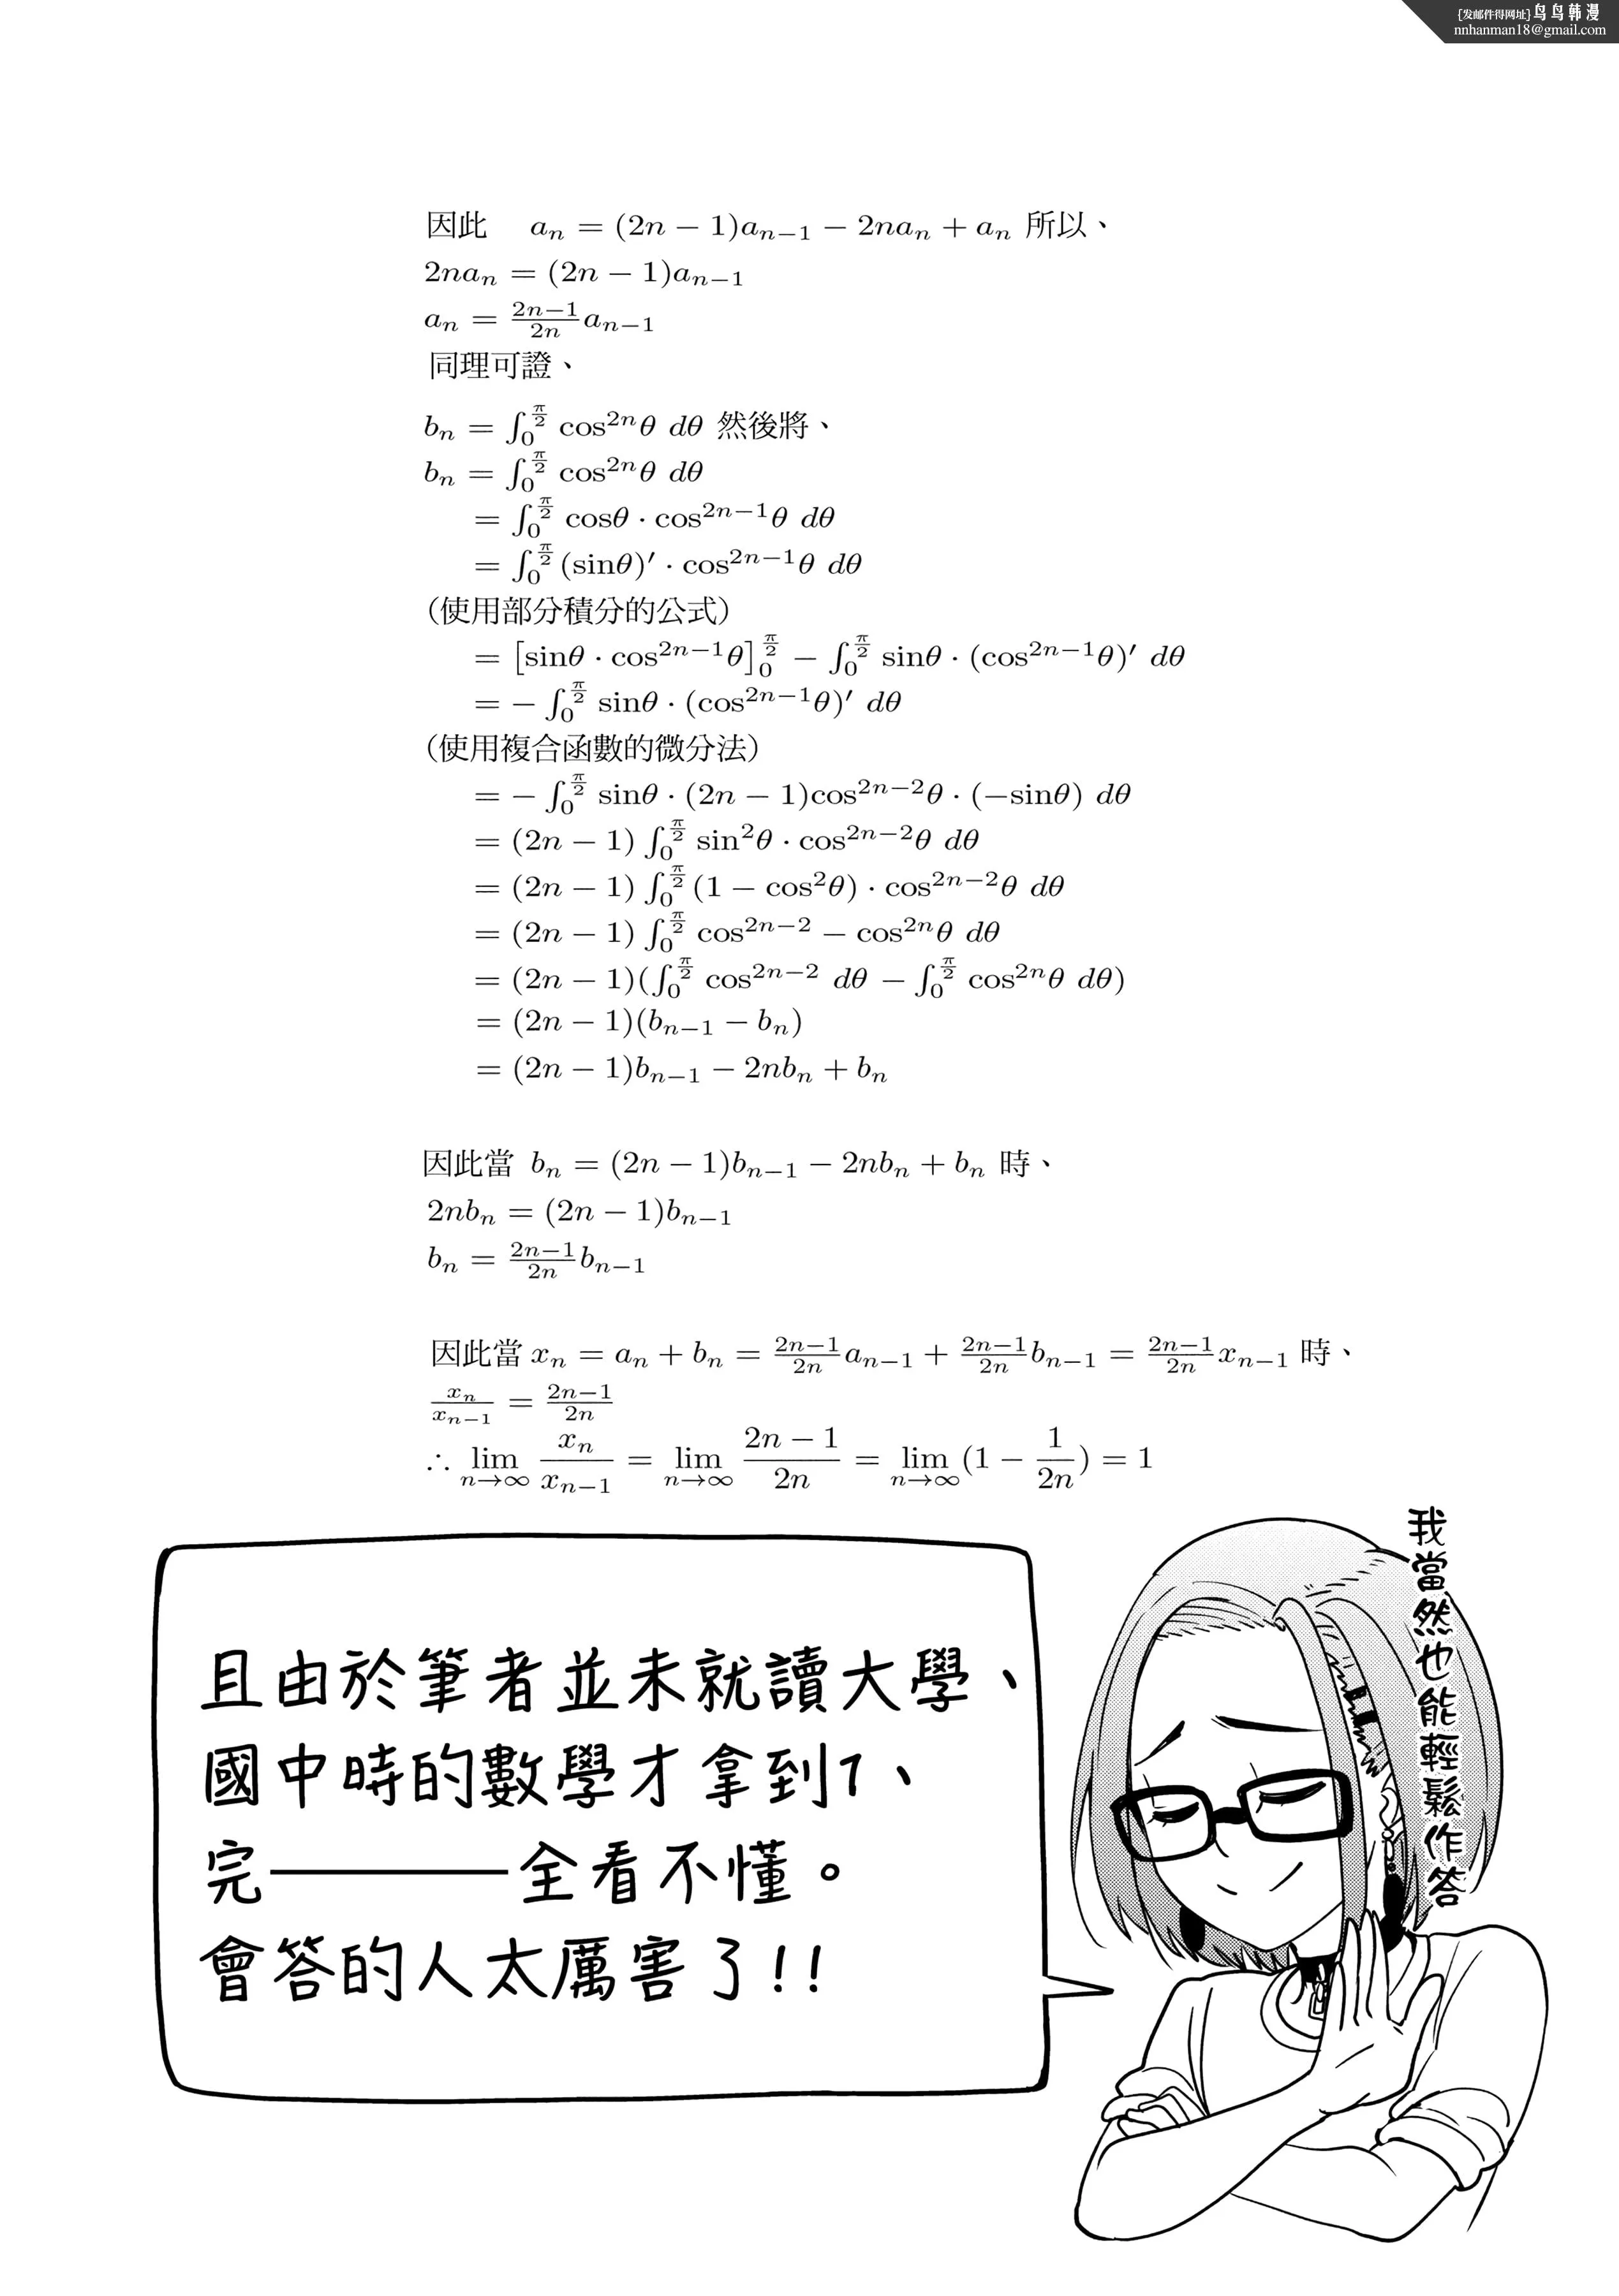 [发邮件得网址]鸟鸟韩漫
nnhanman18@gmail.com
因此 aₙ = (2n − 1)aₙ₋₁ − 2naₙ + aₙ 所以、
2naₙ = (2n − 1)aₙ₋₁
aₙ = \frac{2n−1}{2n}aₙ₋₁
同理可證、
bₙ = ∫_0^{\frac{π}{2}} cos^{2n}θ dθ 然後將、
bₙ = ∫_0^{\frac{π}{2}} cos^{2n}θ dθ
= ∫_0^{\frac{π}{2}} cosθ · cos^{2n−1}θ dθ
= ∫_0^{\frac{π}{2}} (sinθ)′ · cos^{2n−1}θ dθ
(使用部分積分的公式)
= [sinθ · cos^{2n−1}θ]_0^{\frac{π}{2}} − ∫_0^{\frac{π}{2}} sinθ · (cos^{2n−1}θ)′ dθ
= − ∫_0^{\frac{π}{2}} sinθ · (cos^{2n−1}θ)′ dθ
(使用複合函數的微分法)
= − ∫_0^{\frac{π}{2}} sinθ · (2n − 1)cos^{2n−2}θ · (−sinθ) dθ
= (2n − 1) ∫_0^{\frac{π}{2}} sin²θ · cos^{2n−2}θ dθ
= (2n − 1) ∫_0^{\frac{π}{2}} (1 − cos²θ) · cos^{2n−2}θ dθ
= (2n − 1) ∫_0^{\frac{π}{2}} cos^{2n−2} − cos^{2n}θ dθ
= (2n − 1)(∫_0^{\frac{π}{2}} cos^{2n−2} dθ − ∫_0^{\frac{π}{2}} cos^{2n}θ dθ)
= (2n − 1)(bₙ₋₁ − bₙ)
= (2n − 1)bₙ₋₁ − 2nbₙ + bₙ
因此當 bₙ = (2n − 1)bₙ₋₁ − 2nbₙ + bₙ 時、
2nbₙ = (2n − 1)bₙ₋₁
bₙ = \frac{2n−1}{2n}bₙ₋₁
因此當 xₙ = aₙ + bₙ = \frac{2n−1}{2n}aₙ₋₁ + \frac{2n−1}{2n}bₙ₋₁ = \frac{2n−1}{2n}xₙ₋₁ 時、
\frac{xₙ}{xₙ₋₁} = \frac{2n−1}{2n}
∴ \lim_{n→∞} \frac{xₙ}{xₙ₋₁} = \lim_{n→∞} \frac{2n − 1}{2n} = \lim_{n→∞}(1 − \frac{1}{2n}) = 1
我當然也能輕鬆作答
且由於筆者並未就讀大學、
國中時的數學才拿到1、
完———全看不懂。
會答的人太厲害了!!